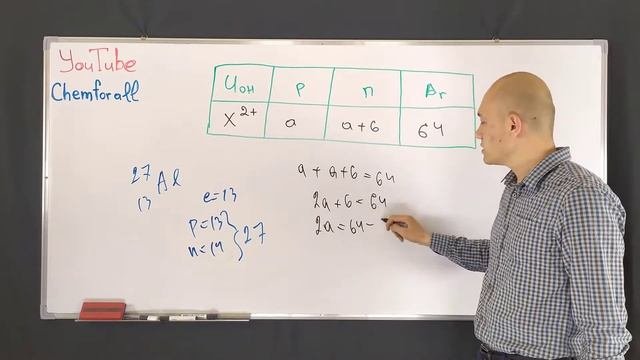 YouTube
Chemforall
Ион p n Ar
X²⁺ a a+6 64
²⁷Al
13
e=13
p=13
n=14
27
a + a+6 = 64
2a+6 = 64
2a = 64 -